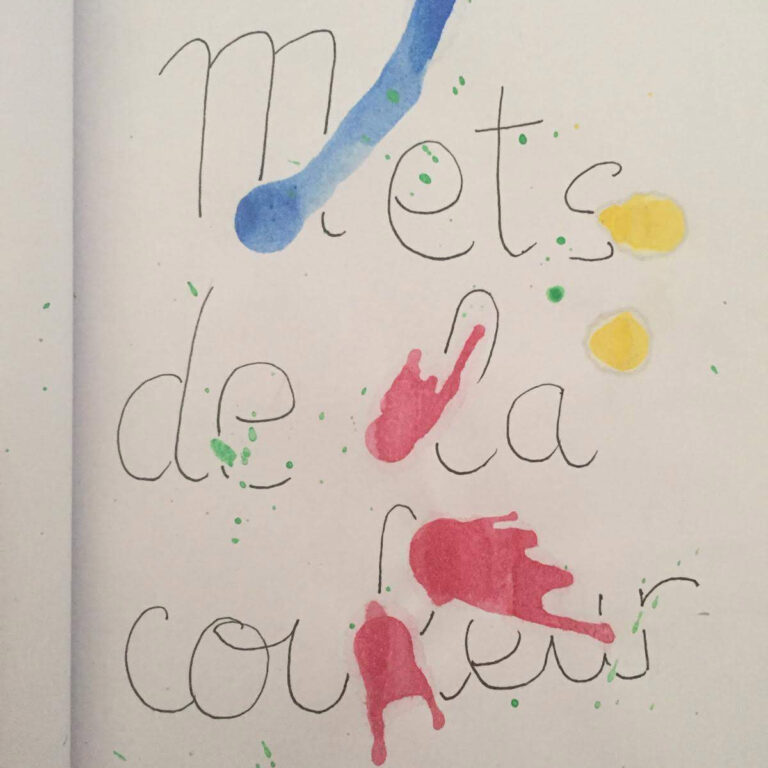 Mets
de la
couleur